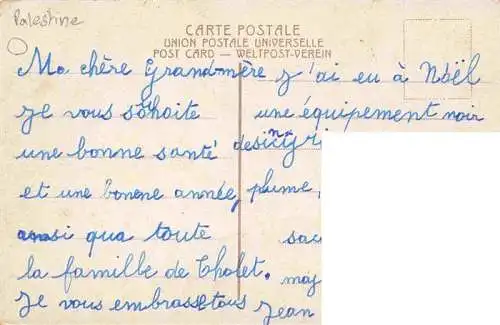 Palestine
CARTE POSTALE
UNION POSTALE UNIVERSELLE
POST CARD — WELTPOST-VEREIN
Ma chère Grand-mère
je vous souhaite
une bonne santé
et une bonene année,
ainsi qua toute
la famille de Cholet.
Je vous embrasse tous
j'ai eu à Noël
une équipement noir
plume,
sac
maj
Jean